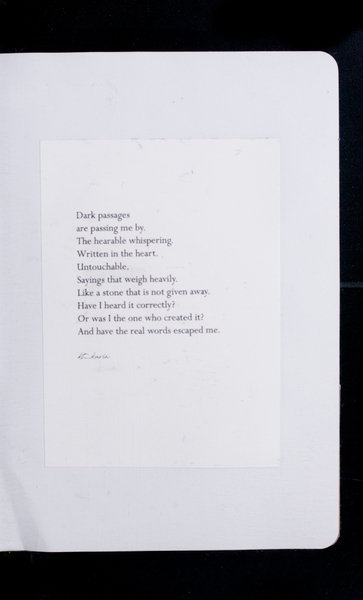 Dark passages
are passing me by.
The hearable whispering.
Written in the heart.
Untouchable.
Sayings that weigh heavily.
Like a stone that is not given away.
Have I heard it correctly?
Or was I the one who created it?
And have the real words escaped me.